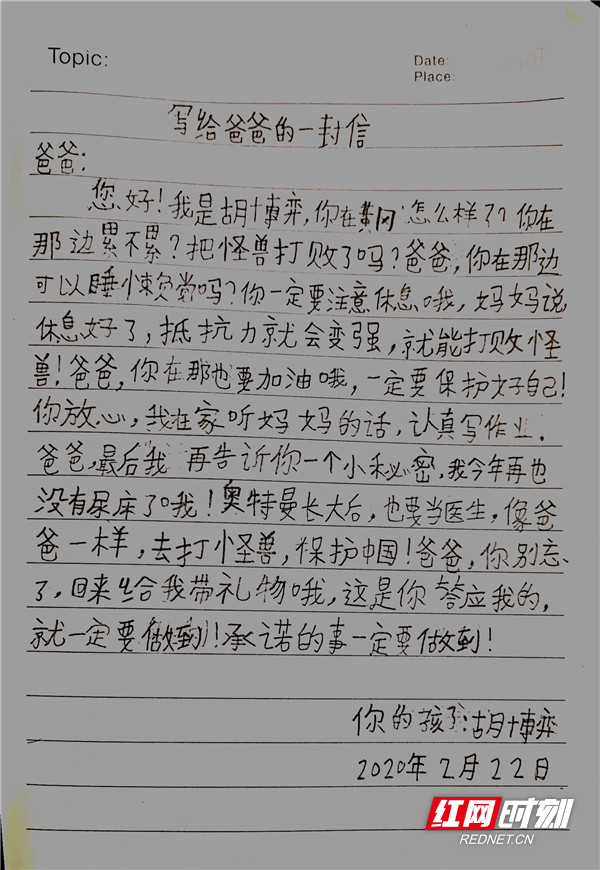 Topic:
Date:
Place:
写给爸爸的一封信
爸爸:
您好!我是胡博弈,你在黄冈怎么样了?你在
那边累不累?把怪兽打败了吗?爸爸,你在那边
可以睡懒觉吗?你一定要注意休息哦,妈妈说
休息好了,抵抗力就会变强,就能打败怪
兽!爸爸,你在那也要加油哦,一定要保护好自己!
你放心,我在家听妈妈的话,认真写作业.
爸爸,最后我再告诉你一个小秘密,我今年再也
没有尿床了哦!奥特曼长大后,也要当医生,像爸
爸一样,去打怪兽,保护中国!爸爸,你别忘
了,回来给我带礼物哦,这是你答应我的,
就一定要做到!承诺的事一定要做到!
你的孩子:胡博弈
2020年2月22日
红网时刻
REDNET.CN